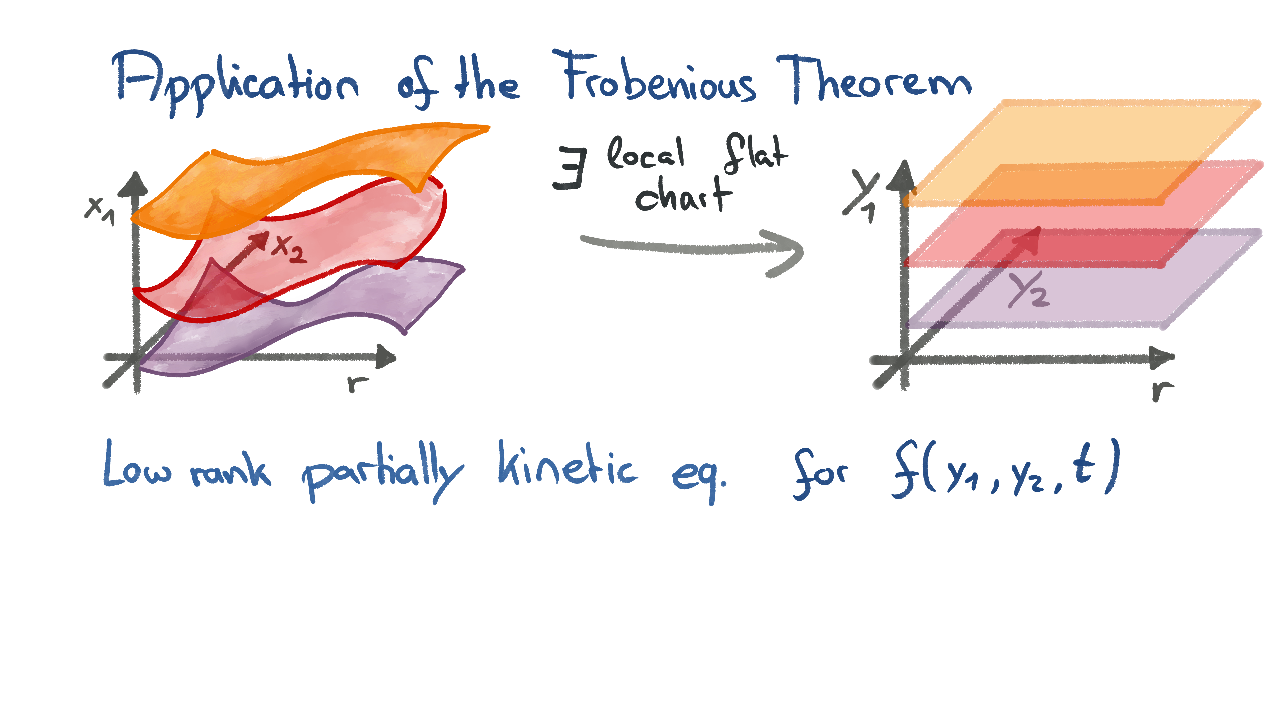 Application of the Frobenious Theorem
x₁
x₂
r
∃ local flat
chart
y₁
y₂
r
Low rank partially kinetic eq. for f(y₁, y₂, t)